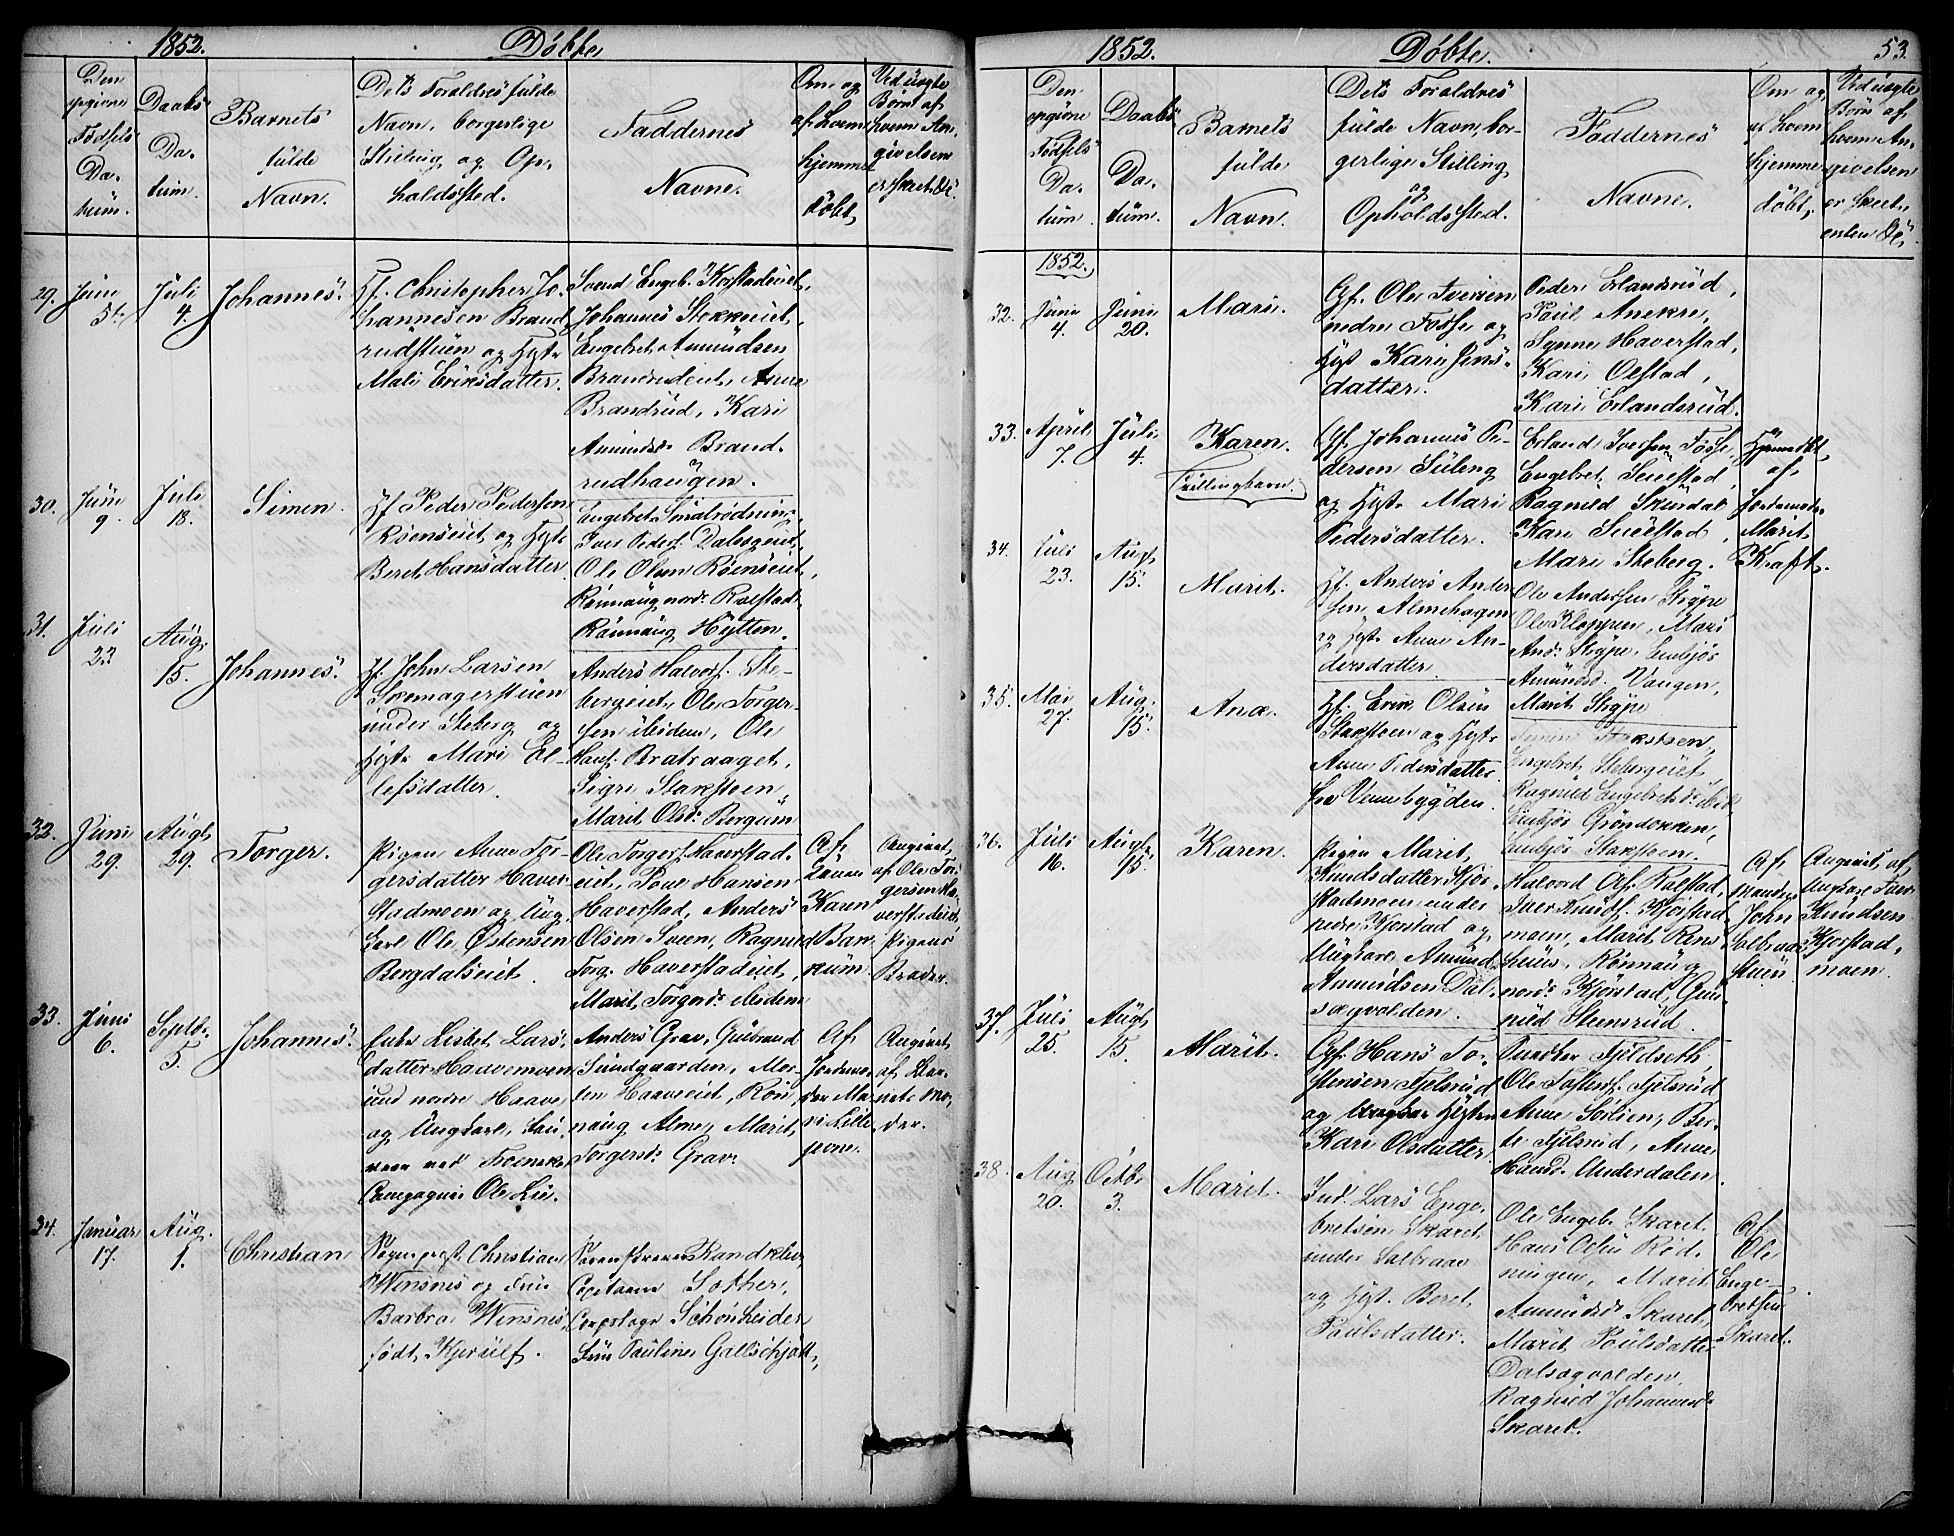 1852.
Døbte
Den
opgivne
Fødsels
Da-
tum.
Daabs
Da-
tum.
Barnets
fulde
Navn.
Dets Forældres fulde
Navn, borgerlige
Stilling og Op-
holdssted.
Faddernes
Navne.
Om og
af hvem
hjemme
døbt,
Ved uægte
Børn af
hvem An-
givelsen
er skeet &c.
29.
Juni
5te
Juli
4.
Johannes.
Gf. Christopher Jo-
hannesen Brand-
rudstuen og Hust.
Mali Eriksdatter.
Svend Engeb.
Johannes
Engebret Amundsen
Brandrudeiet, Anne
Brandrud, Kari
Amundsd. Brand-
rudhaugen.
30.
Juni
9.
Juli
18.
Simen.
Hf. Peder Pedersen
Røenseiet og Hust.
Beret Hansdatter
Engebret
Iver Peders. Dalseg
Ole Olsen Røenseiet,
Rønnaug nord. Rolstad
Rønnaug Hytten.
31.
Juli
23.
Aug.
15.
Johannes.
Hf. John Larsen
Skomagerstuen
under Steberg og
Hust. Mari El-
lefsdatter.
Anders Halvors. Ste-
bergeiet, Ole Torger-
sen ibidem, Ole
Hans. Bratraaget,
Sigri Stakstoen,
Marit Olsd. Bergum
32.
Juni
29.
Augt.
29.
Torger.
Pigen Anne Tor-
gersdatter Haver-
stadmoen og Ung-
karl Ole Østensen
Bergdalseiet.
Ole Torgers. Haverstad-
eiet, Poul Hansen
Haverstad, Anders
Olsen Sveen, Ragnild
Torg. Haverstadeiet,
Marit Torgersd. ibidem
Af
Karen
Bær-
kum.
Angivet
af Ole Tor-
gersen Ha-
verstadeiet,
Pigens
Broder.
33.
Juni
6.
Septbr.
5.
Johannes.
Lisbet Lars-
datter Haavemoen
und nordre Haave
og Ungkarl,
ved
Compagnie Ole Lie.
Anders Grav, Gulbrand
Sundgaarden, Mor-
ten Haaveeiet, Røn-
naug Alme, Marit
Torgersd. Grav.
Af
Jordemo-
der Ma-
ri Lille-
Angivet
af Bar-
nets Mo-
der.
34.
Januar
17.
Aug.
1.
Christian
Sogneprest Christian
Wensnes og Frue
Barbra Wensnes,
født Kjerulf.
Sorenskriver Randklev,
Capitaine
Corpslæge Schønheider
Frue Pauline Gallschjøtt,
1852.
Døbte.
53.
Den
opgivne
Fødsels
Da-
tum.
Daabs
Da-
tum.
Barnets
fulde
Navn.
Dets Forældres
fulde Navn, bor-
gerlige Stilling
og
Opholdssted.
Faddernes
Navne.
Om og
af hvem
hjemme
døbt,
Ved uægte
Børn af
hvem An-
givelsen
er skeet,
enten &c.
1852.
32.
Juni
4.
Juni
20.
Mari.
Gf. Ole Iversen
nedre Fosse og
Hust Kari Jens-
datter.
Peder Erlandsrud,
Poul Anekre,
Synne Haverstad,
Kari Olstad,
Kari Erlandsrud.
33.
April
7.
Juli
4.
Karen.
Trillingbarn.
Gf. Johannes Pe-
dersen
og Hust. Mari
Pedersdatter.
Erland Iversen Fosse,
Engebret Seielstad,
Ragnild Skurdal
Kari Seielstad,
Mari Steberg.
Hjemmdbt.
af
Jordemodr.
Marit
Kraft.
34.
Juli
23.
Augt.
15.
Marit.
Hf. Anders Ander-
sen Almehagen
og Hust. Anne An-
dersdatter
Ole Andersen Stype
Ole Kloppen, Mari
And. Stype, Embjør
Amundsd. Vangen,
Marit Stype
35.
Mai
27.
Aug.
15.
Ane.
Hf. Erik Olsen
Stakstoen og Hust.
Anne Pedersdatter
fra Vennebygden.
Engebret Stebergeiet,
Ragnild Engebretsd. ibid.
Embjør Grøndokken,
Embjør Stakstoen.
36.
Juli
16.
Augt.
15.
Karen.
Pigen Marit
Knudsdatter Kjør-
stadmoen under
nedre Kjorstad og
Ungkarl Amund
Amundsen Dal-
sægvolden.
Halvord Ols. Rolstad,
Iver Knuds. Kjørstad-
moen, Marit
Rønnaug
nord. Kjorstad, Gun-
nild Steensrud.
Af
John
Solbraa-
stuen
Angivet af
Ungkarl Iver
Knudsen
Kjorstad-
moen.
37.
Juli
25.
Augt.
15.
Marit.
Gf. Hans To-
stensen Fjelsrud
og Hustru
Kari Olsdatter
Fjeldseth,
Ole Tostens. Fjelsrud
Anne Sørlien, Ber-
te Fjelsrud, Anne
Hansd. Underdalen.
38.
Aug.
20.
Octbr.
3.
Marit.
Ind. Lars Enge-
bretsen Skaret
under Solbraae
og Hust. Beret
Poulsdatter.
Ole Engeb. Skaret.
Hans Olsen Rød-
ningen, Marit
Amundsd. Skaret,
Marit Poulsdatter
Dalsægvolden,
Ragnild Johannesd.
Skaret.
Af
Ole
Enge-
bretsen
Skaret.